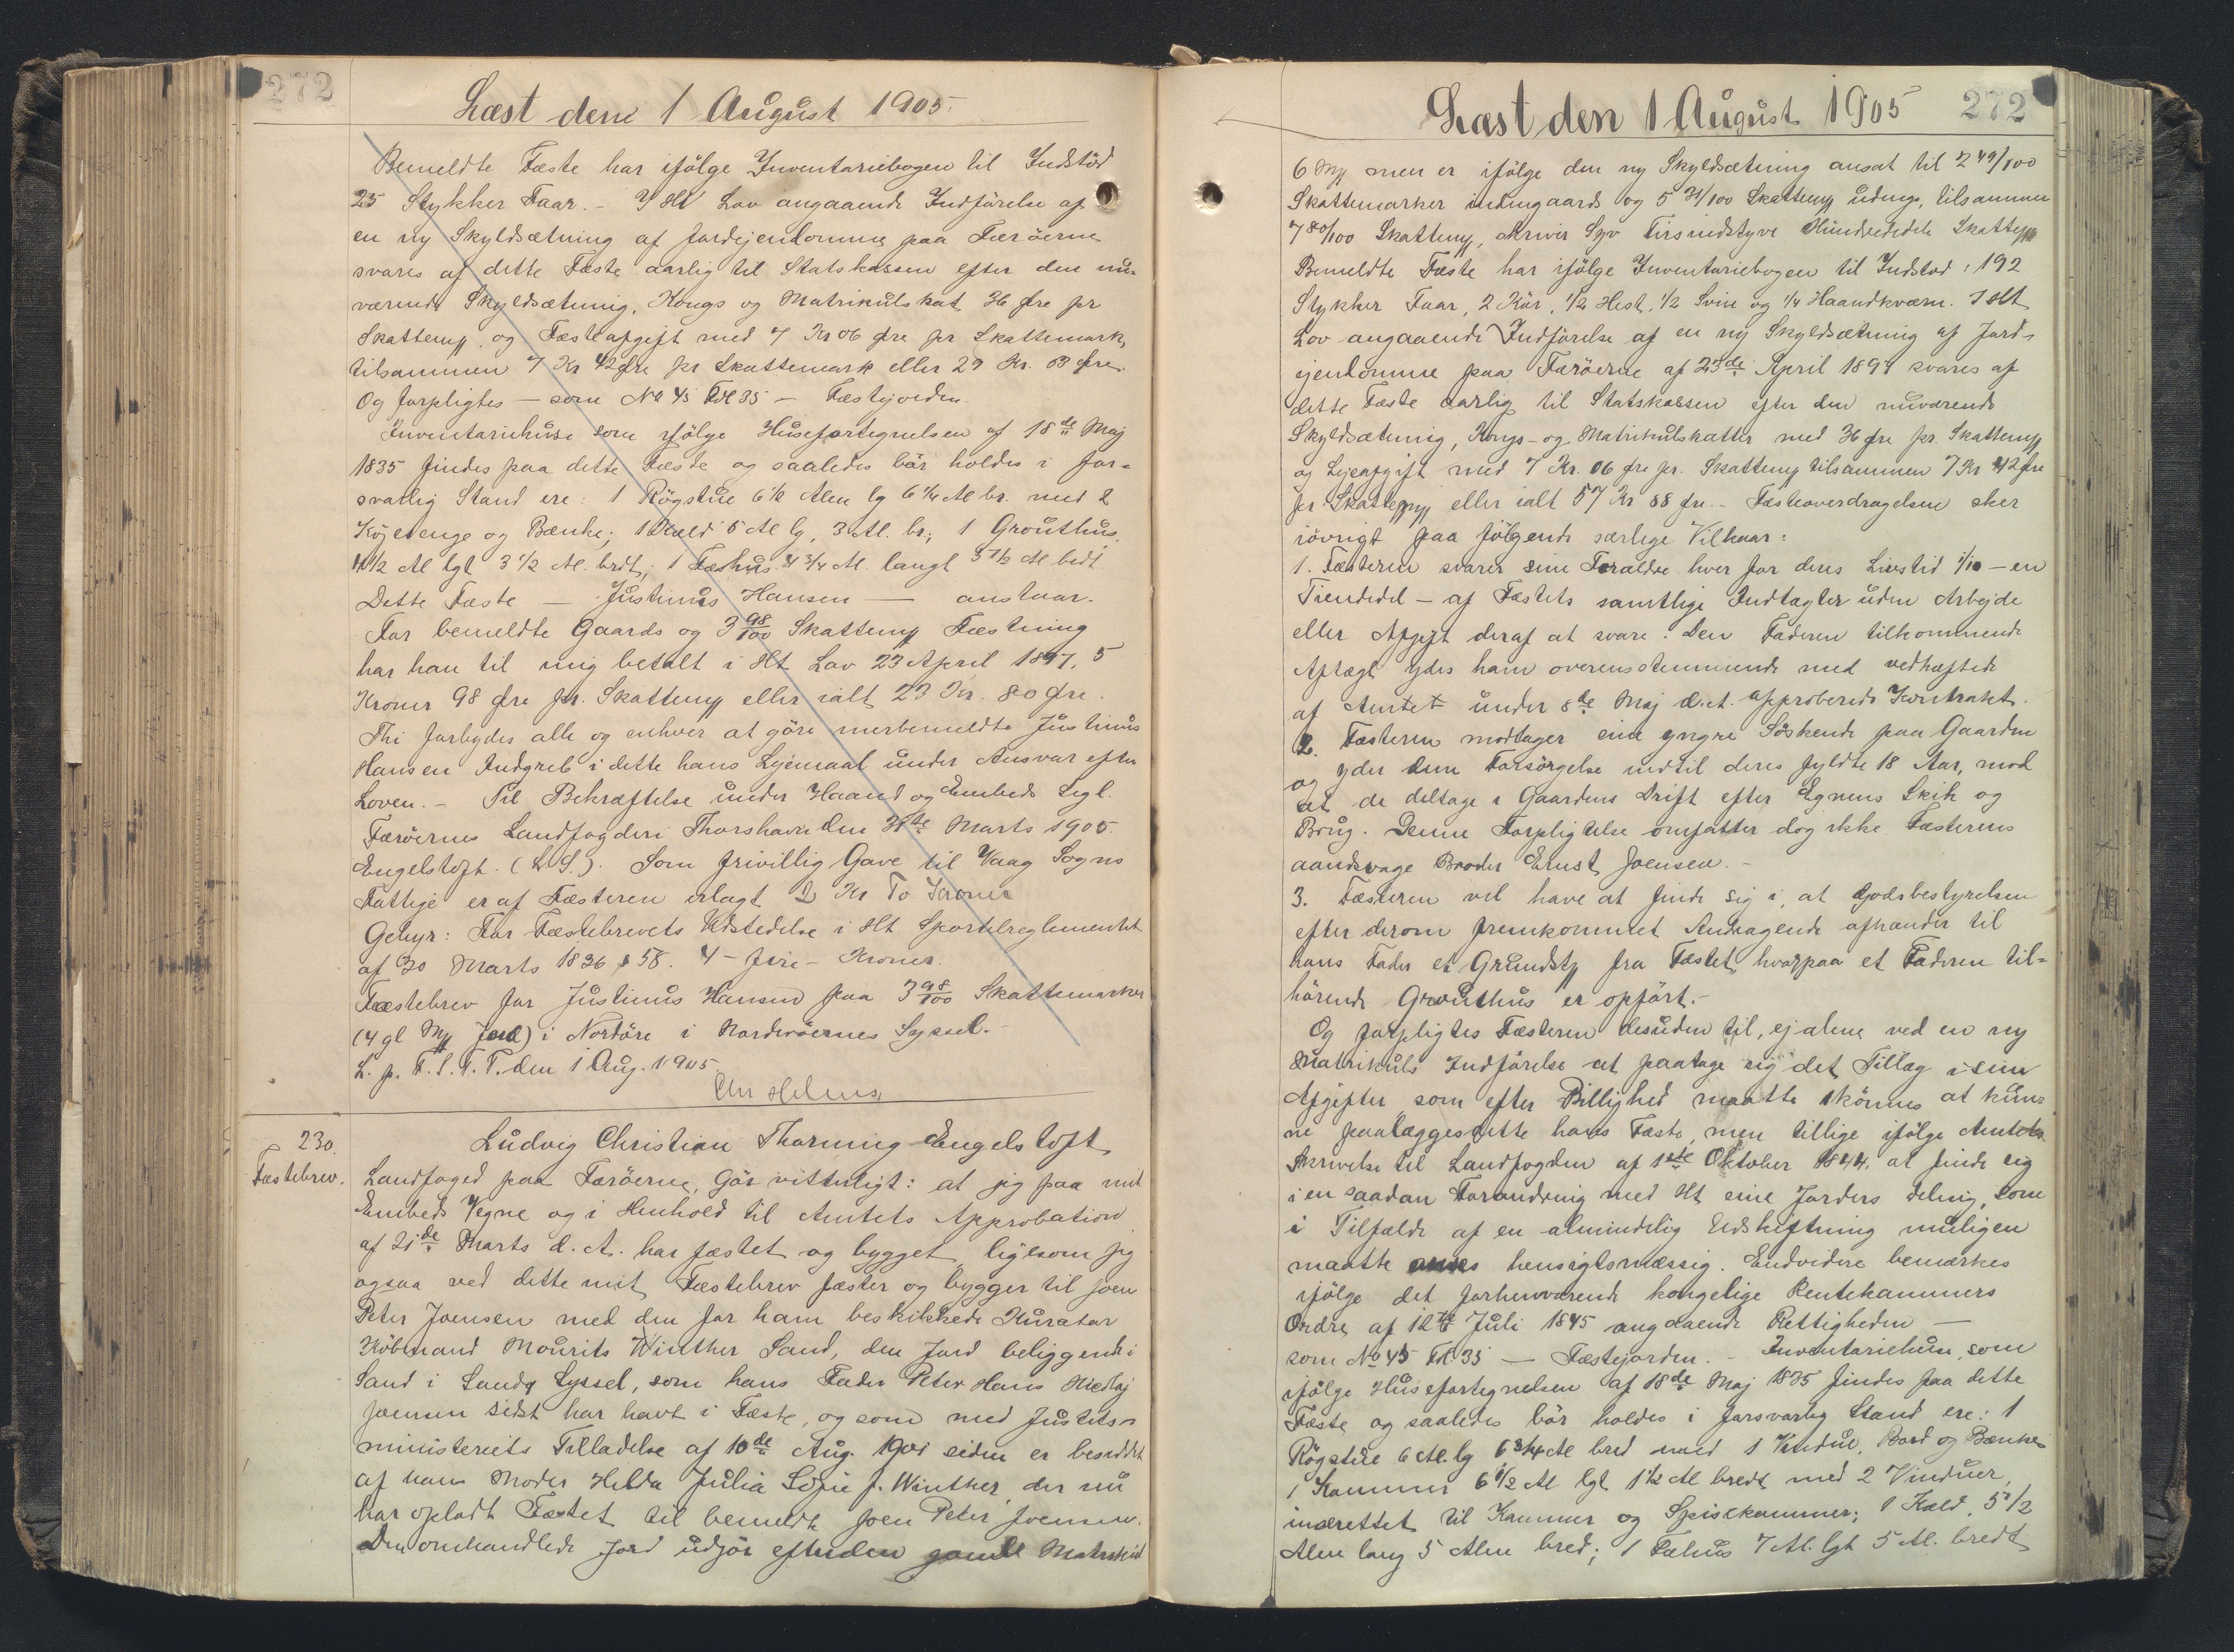 272
Læst den 1 August 1905.
Bemeldte Fæste har ifölge Inventariebogen til Indstöd
25 Stykker Faar. - I Ht Lov angaaende Indförelse af
en ny Skyldsætning af Jordejendomme paa Færöerne
svares af dette Fæste aarlig til Statskassen efter den nu-
værende Skyldsætning, Kongs og Matrikulskat 36 Øre pr
Skattemk. og Fæsteafgift med 7 Kr 06 Øre pr Skattemark,
tilsammen 7 Kr 42 Øre pr Skattemark eller 29 Kr. 53 Øre.
Og forpligtes — som No 45 Fol 35 — Fæstejorden.
Inventariehuse som ifölge Husefortegnelsen af 18de Maj
1835 findes paa dette Fæste og saaledes bör holdes i for-
svarlig Stand ere: 1 Rögstue 6 1/2 Alen lg 6 1/4 Al br. med 2
Köjesenge og Bænke; 1 Kæld 5 Al lg, 3 Al. br; 1 Grouthus,
4 1/2 Al lgt 3 1/2 Al. brdt; 1 Fæhus 4 3/4 Al. langt 3 1/2 Al bedt.
Dette Fæste — Justinus Hansen — anstaar.
For bemeldte Gaards og 3 98/100 Skattemk Fæstning
har han til mig betalt i Ht Lov 23 April 1897, 5
Kroner 98 Øre pr. Skattemk eller ialt 23 Kr. 80 Øre.
Thi forbydes alle og enhver at göre merbemeldte Justinus
Hansen Indgreb i dette hans Lejemaal under Ansvar efter
Loven. - Til Bekræftelse under Haand og Embeds Segl.
Færöernes Landfogderi Thorshavn den 31te Marts 1905.
Engelstoft. (L.S.). Som frivillig Gave til Vaag Sogns
Fattige er af Fæsteren erlagt 2 Kr To Kroner
Gebyr: For Fæstebrevets Udstedelse i Ht Sportelreglementet
af 30 Marts 1836 § 58. 4 - fire - Kroner.
Fæstebrev for Justinus Hansen paa 3 98/100 Skattemarker
(4 gl Mk Jord) i Nordöre i Norderöernes Syssel.-
L. p. F. S. T. T. den 1 Aug. 1905.
230.
Fæstebrev.
Ludvig Christian Tharning Engelstoft
Landfoged paa Færöerne, Gör vitterligt: at jeg paa mit
Embeds Vegne og i Henhold til Amtets Approbation
af 21de Marts d. A. har fæstet og bygget, ligesom jeg
ogsaa ved dette mit Fæstebrev fæster og bygger til Joen
Peter Joensen med den for ham beskikkede Kurator
Köbmand Mourits Winther Sand, den Jord beliggende i
Sand i Sandö Syssel, som hans Fader Peter Hans
Joensen sidst har havt i Fæste, og som med Justits-
ministeriets Tilladelse af 10de Aug. 1901 siden er besiddet
af hans Moder Hilda Julia Sofie f. Winther, der nu
har opladt Fæstet til bemeldte Joen Peter Joensen.
Den omhandlede Jord udgör efter den gamle Matrikul
272
Læst den 1 August 1905
6 Mk men er ifölge den ny Skyldsætning ansat til 2 49/100
Skattemarker indengaards og 5 31/100 Skattemk udeng, tilsammen
7 80/100 Skattemk, skriver Syv Firsindstyve Hundrededele Skattemk
Bemeldte Fæste har ifölge Inventariebogen til Indstod: 192
Stykker Faar, 2 Köer, 1/2 Hest, 1/2 Svin og 1/4 Haandkværn. I Ht
Lov angaaende Indförelse af en ny Skyldsætning af Jord-
ejendomme paa Færöerne af 23de April 1897 svares af
dette Fæste aarlig til Statskassen efter den nuværende
Skyldsætning, Kongs- og Matrikulskatter med 36 Øre pr. Skattemk
og Lejeafgift med 7 Kr. 06 Øre pr. Skattemk tilsammen 7 Kr 42 Øre
pr Skattemk eller ialt 57 Kr 88 Øre. - Fæsteoverdragelsen sker
iövrigt paa fölgende særlige Vilkaar:
1. Fæsteren svarer sine Forældre hver for deres Livstid 1/10 - en
Tiendedel - af Fæstets samtlige Indtægter uden Arbejde
eller Afgift deraf at svare. Den Faderen tilkommende
Aftægt ydes ham overensstemmende med vedhæftede
af Amtet under 8de Maj d.A. approberede Kontrakt.
2. Fæsteren modtager sine yngre Söskende paa Gaarden
og yder dem Forsörgelse indtil deres fyldte 18 Aar, mod
at de deltage i Gaardens Drift efter Egnens Skik og
Brug. Denne Forpligtelse omfatter dog ikke Fæsterens
aandsvage Broder Ernst Joensen. -
3. Fæsteren vil have at finde sig i, at Godsbestyrelsen
efter derom fremkommet Andragende afhænder til
hans Fader et Grundstk fra Fæstet, hvorpaa et Faderen til-
hörende Grouthus er opfört. -
Og forpligtes Fæsteren desuden til, ej alene ved en ny
Matrikuls Indförelse at paatage sig det Tillæg i sine
Afgifter som efter Billighed maatte skönnes at kun-
ne paalægges dette hans Fæste, men tillige ifölge Amtets
Skrivelse til Landfogden af 1ste Oktober 1844, at finde sig
i en saadan Forandring med Ht sine Jorders Deling, som
i Tilfælde af en almindelig Udskiftning muligen
maatte anses hensigtsmæssig. Endvidere bemærkes
ifölge det forhenværende kongelige Rentekammers
Ordre af 12te Juli 1845 angaaende Rettigheden —
som No 45 Fol. 35 — Fæstejorden. - Inventariehuse, som
ifölge Husefortegnelsen af 18de Maj 1835 findes paa dette
Fæste og saaledes bör holdes i forsvarlig Stand ere: 1
Rögstue 6 Al. lg 6 3/4 Al bred med 1 Vindue, Bord og Bænke
1 Kammer 6 1/2 Al lgt 1 1/2 Al bredt med 2 Vinduer,
indrettet til Kammer og Spisekammer; 1 Kæld, 5 1/2
Alen lang 5 Alen bred; 1 Fæhus 7 Al. lgt 5 Al. bredt